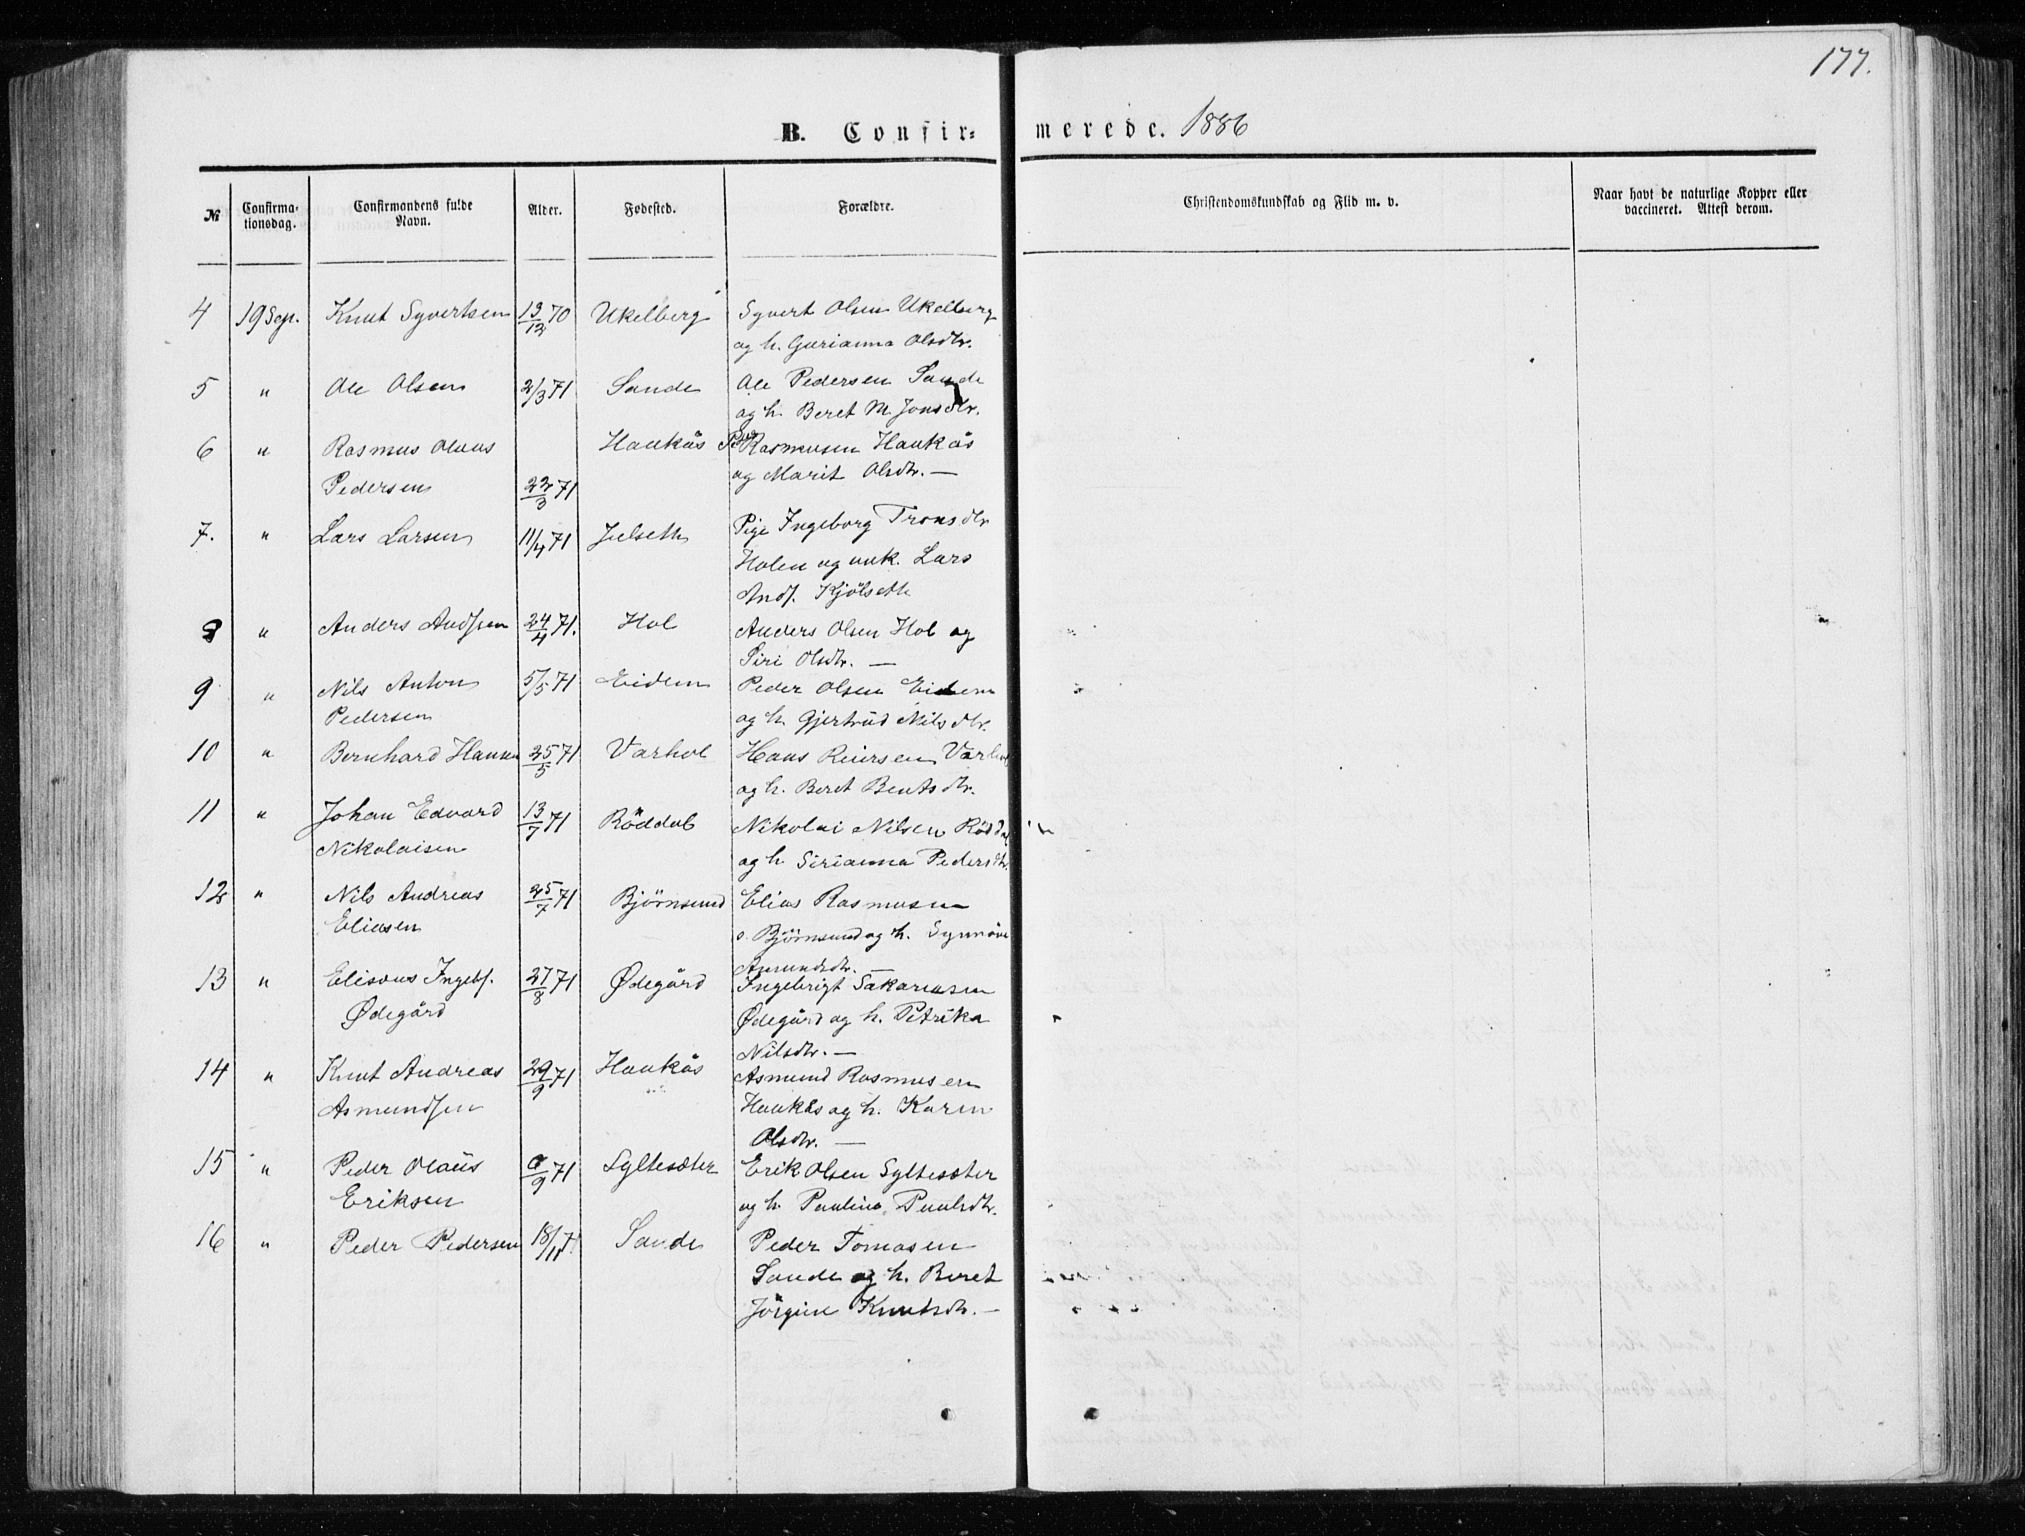 177.
B. Confirmerede. 1886
№ Confirmationsdag. Confirmandens fulde Navn. Alder. Fødested. Forældre. Christendomskundskab og Flid m. v. Naar havt de naturlige Kopper eller vaccineret. Attest derom.
4 19 Sep. Knut Syvertsen 13/12 70 Ukelberg Syvert Olsen Ukelberg
og h. Gurianna Olsdtr.
5 " Ole Olsen 2/3 71 Sande Ole Pedersen Sande
og h. Beret M. Jonsdtr.
6 " Rasmus Olaus Haukås Rasmusen Haukås
Pedersen 22/3 71 og Marit Olsdtr. —
7. " Lars Larsen 11/4 71 Julseth Pige Ingeborg Tronsdtr
Holen og unk. Lars
Ands. Kjölseth
8 " Anders Andssen 24/4 71. Hol Anders Olsen Hol og
Siri Olsdtr. —
9 " Nils Anton 5/5 71 Eidem Peder Olsen Eidem
Pedersen og h. Gjertrud Nilsdtr.
10 " Bernhard Hansen 25/5 71 Varhol Hans Reiersen Varhol
og h. Beret Bentsdtr.
11 " Johan Edvard 13/7 71 Röddal Nikolai Nilsen Röddal
Nikolaisen og h. Sirianna Pedersdtr.
12 " Nils Andreas 25/7 71 Bjørnsund Elias Rasmusen
Eliasen Bjørnsund og h. Synnöve
Amundsdtr. —
13 " Eliseus Ingebs. 27/8 71 Ødegård Ingebrigt Sakariasen
Ødegård Ødegård og h. Petrika
Nilsdtr. —
14 " Knut Andreas 29/9 71 Haukås Asmund Rasmusen
Asmundsen Haukås og h. Karen
Olsdtr. —
15 " Peder Olaus /9 71 Syltesæter Erik Olsen Syltesæter
Eriksen og h. Pauline Paulsdtr.
16 " Peder Pedersen 18/11 71 Sande Peder Tomasen
Sande og h. Beret
Jörgine Knutsdtr. —